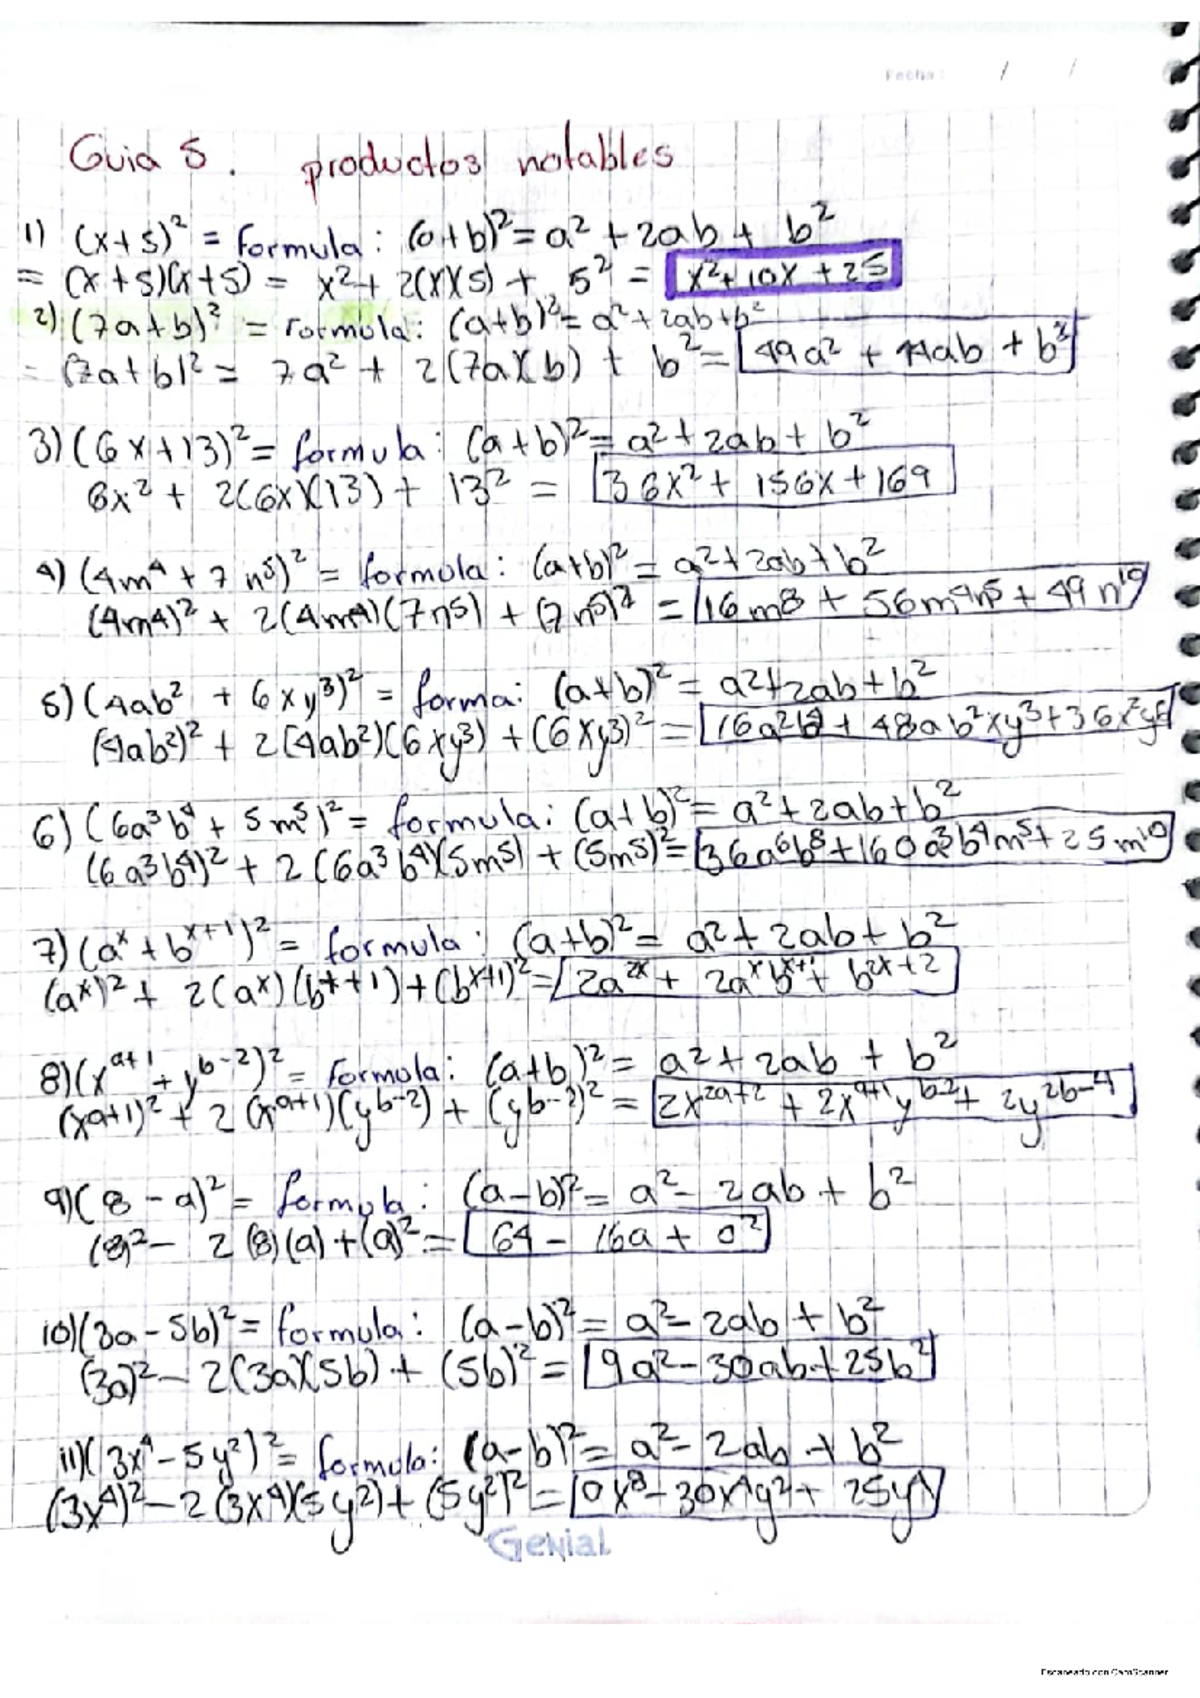 Fecha: / /
Guia 5. productos notables
1) (x+5)² = formula: (a+b)² = a² + 2ab + b²
= (x+5)(x+5) = x² + 2(x)(5) + 5² = x²+10x+25
2) (7a+b)² = formula: (a+b)² = a²+2ab+b²
= (7a+b)² = 7a² + 2(7a)(b) + b² = 49a² + 14ab + b²
3) (6x+13)² = formula: (a+b)² = a²+2ab+b²
6x² + 2(6x)(13) + 13² = 36x² + 156x + 169
4) (4m⁴ + 7n⁵)² = formula: (a+b)² = a²+2ab+b²
(4m⁴)² + 2(4m⁴)(7n⁵) + (7n⁵)² = 16m⁸ + 56m⁴n⁵ + 49n¹⁰
5) (4ab² + 6xy³)² = forma: (a+b)² = a²+2ab+b²
(4ab²)² + 2(4ab²)(6xy³) + (6xy³)² = 16a²b⁴ + 48ab²xy³ + 36x²y⁶
6) (6a³b⁴ + 5m⁵)² = formula: (a+b)² = a²+2ab+b²
(6a³b⁴)² + 2(6a³b⁴)(5m⁵) + (5m⁵)² = 36a⁶b⁸+160a³b⁴m⁵+25m¹⁰
7) (aˣ + bˣ⁺¹)² = formula: (a+b)² = a²+2ab+b²
(aˣ)² + 2(aˣ)(bˣ+1) + (bˣ⁺¹)² = 2a²ˣ + 2aˣbˣ⁺¹ + b²ˣ⁺²
8) (x^(a+1) + y^(b-2))² = formula: (a+b)² = a²+2ab+b²
(x^(a+1))² + 2(x^(a+1))(y^(b-2)) + (y^(b-2))² = 2x^(2a+2) + 2x^(a+1)y^(b-2) + 2y^(2b-4)
9) (8-a)² = formula: (a-b)² = a²-2ab+b²
(8)² - 2(8)(a)+(a)² = 64 - 16a + a²
10) (3a-5b)² = formula: (a-b)² = a²-2ab+b²
(3a)² - 2(3a)(5b) + (5b)² = 9a²-30ab+25b²
11) (3x⁴-5y²)² = formula: (a-b)² = a²-2ab+b²
(3x⁴)² - 2(3x⁴)(5y²) + (5y²)² = 9x⁸-30x⁴y²+25y⁴
Genial
Escaneado con CamScanner